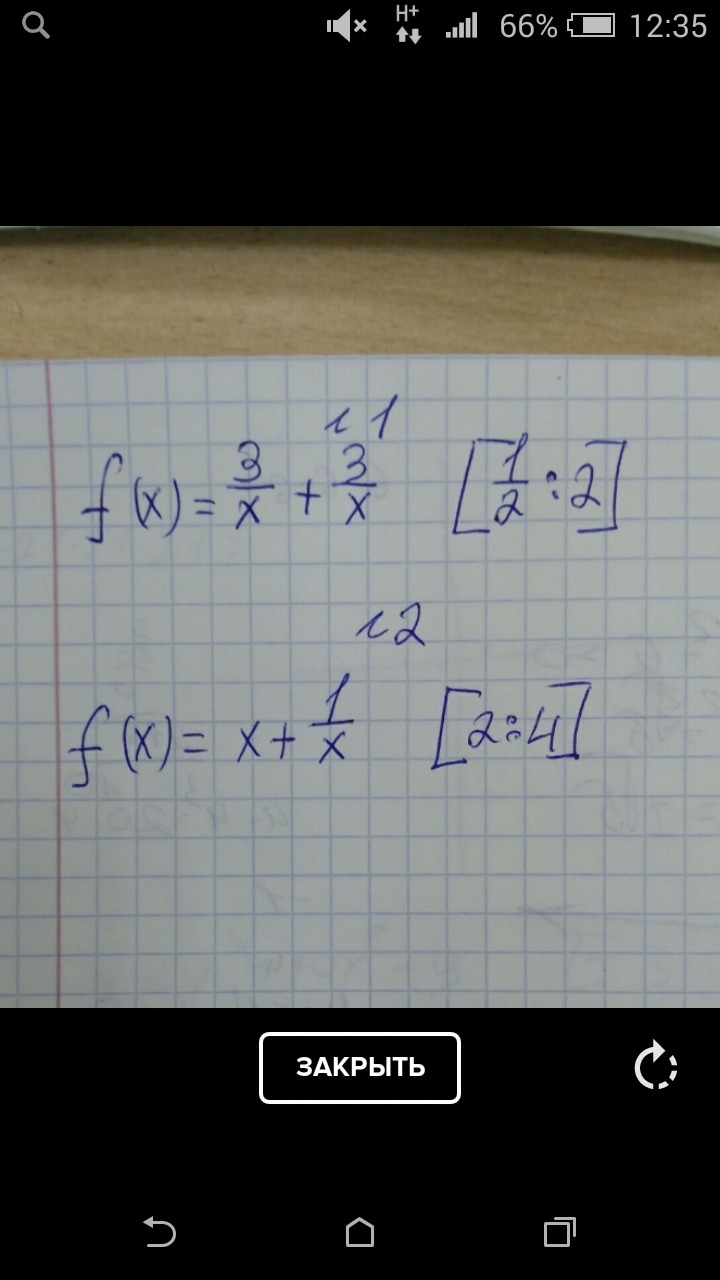 H+ 66% 12:35
ı 1
f(x) = 3/x + 3/x [1/2 : 2]
ı 2
f(x) = x + 1/x [2:4]
ЗАКРЫТЬ